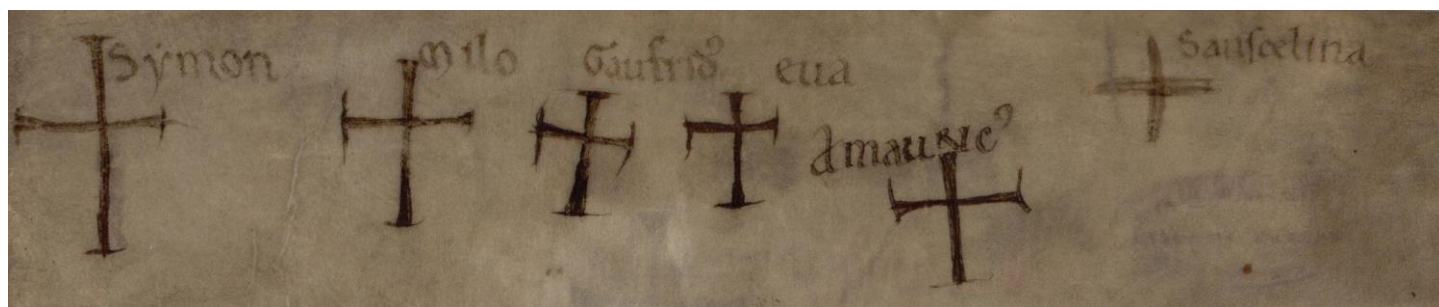 Symon Milo Gaufrid⁹ eua Sanscelina
Amauric⁹